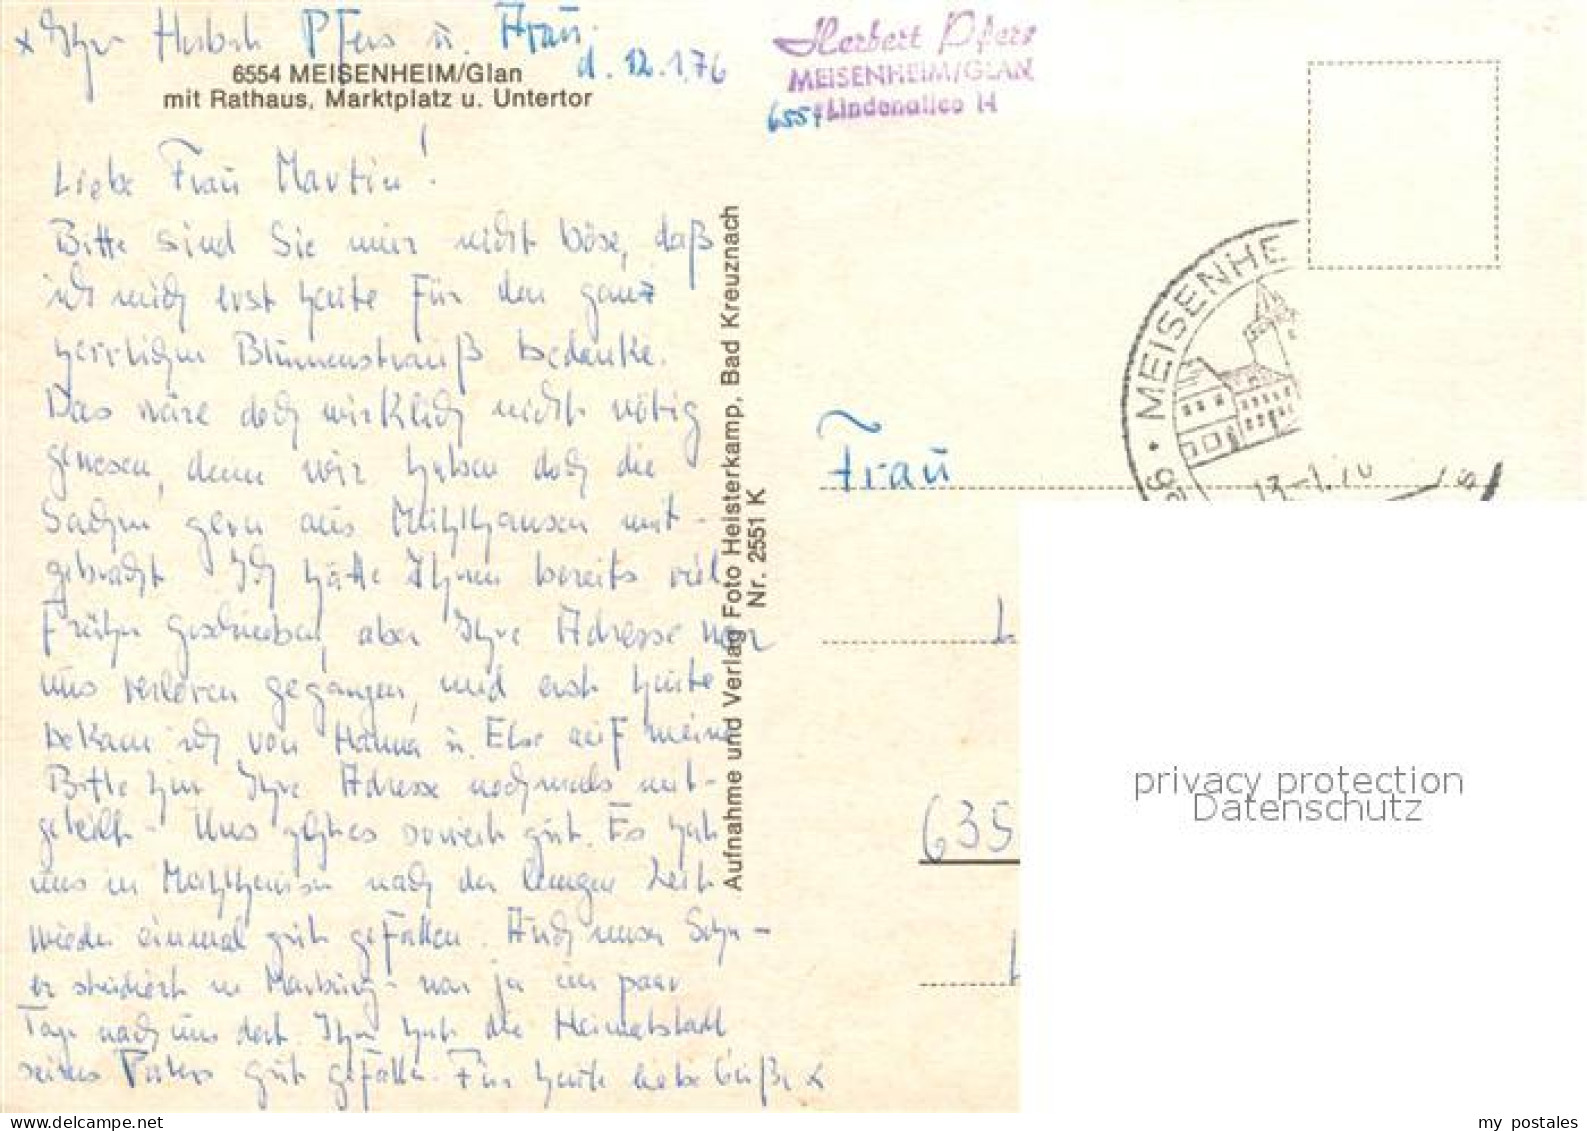 x Ihr Herbert Pfers u. Frau.
d. 12.1.76
6554 MEISENHEIM/Glan
mit Rathaus, Marktplatz u. Untertor
Liebe Frau Martin!
Bitte sind Sie mir nicht böse, daß
ich mich erst heute für den ganz
herrlichen Blumenstrauß bedanke.
Das wäre doch wirklich nicht nötig
gewesen, denn wir haben doch die
Sachen gern aus Mühlhausen mit-
gebracht. Ich hätte Ihnen bereits viel
früher geschrieben, aber Ihre Adresse war
uns verloren gegangen, und erst heute
bekam ich von Hanna u. Else auf meine
Bitte hin Ihre Adresse nochmals mit-
geteilt - Uns geht es soweit gut. Es hat
uns in Mühlhausen nach der langen Zeit
wieder einmal gut gefallen. Auch unser Sohn -
er studiert in Marburg - war ja ein paar
Tage nach uns dort. Ihm hat die Heimatstadt
seines Vaters gut gefallen. Für heute liebe Grüße x
Aufnahme und Verlag Foto Heisterkamp, Bad Kreuznach
Nr. 2551 K
Herbert Pfers
MEISENHEIM/GLAN
6554 Lindenallee 14
MEISENHE
13.-1.76
Frau
L
635
privacy protection
Datenschutz
my postales